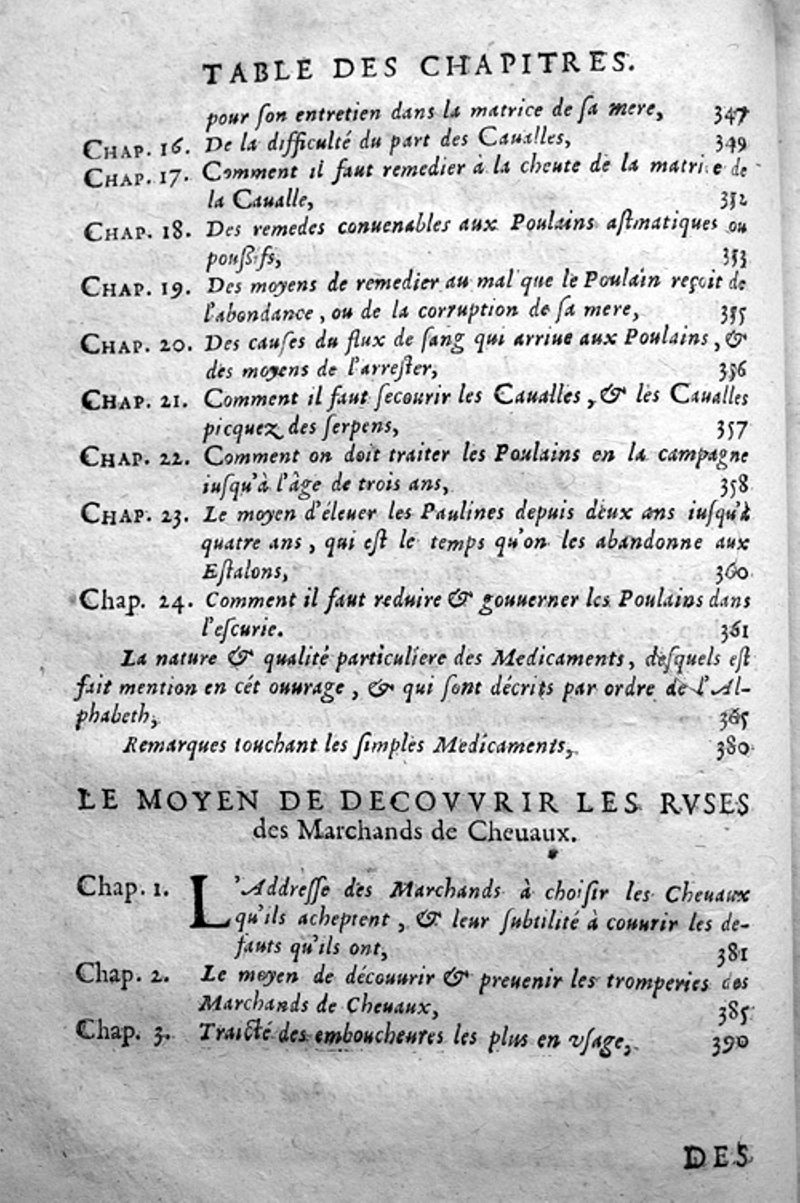 TABLE DES CHAPITRES.
pour ſon entretien dans la matrice de ſa mere, 347
CHAP. 16. De la difficulté du part des Caualles, 349
CHAP. 17. Comment il faut remedier à la cheute de la matrice de
la Caualle, 352
CHAP. 18. Des remedes conuenables aux Poulains aſtmatiques ou
pouſſifs, 353
CHAP. 19. Des moyens de remedier au mal que le Poulain reçoit de
l'abondance, ou de la corruption de ſa mere, 355
CHAP. 20. Des cauſes du flux de ſang qui arriue aux Poulains, &
des moyens de l'arreſter, 356
CHAP. 21. Comment il faut ſecourir les Caualles, & les Caualles
picquez des ſerpens, 357
CHAP. 22. Comment on doit traiter les Poulains en la campagne
iuſqu'à l'âge de trois ans, 358
CHAP. 23. Le moyen d'éleuer les Paulines depuis deux ans iuſqu'à
quatre ans, qui eſt le temps qu'on les abandonne aux
Eſtalons, 360
Chap. 24. Comment il faut reduire & gouuerner les Poulains dans
l'eſcurie. 361
La nature & qualité particuliere des Medicaments, deſquels eſt
fait mention en cét ouurage, & qui ſont décrits par ordre de l'Al-
phabeth, 365
Remarques touchant les ſimples Medicaments, 380
LE MOYEN DE DECOVVRIR LES RVSES
des Marchands de Cheuaux.
Chap. 1. L'Addreſſe des Marchands à choiſir les Cheuaux
qu'ils acheptent, & leur ſubtilité à couurir les de-
fauts qu'ils ont, 381
Chap. 2. Le moyen de découurir & preuenir les tromperies des
Marchands de Cheuaux, 385
Chap. 3. Traicté des emboucheures les plus en vſage, 390
DES